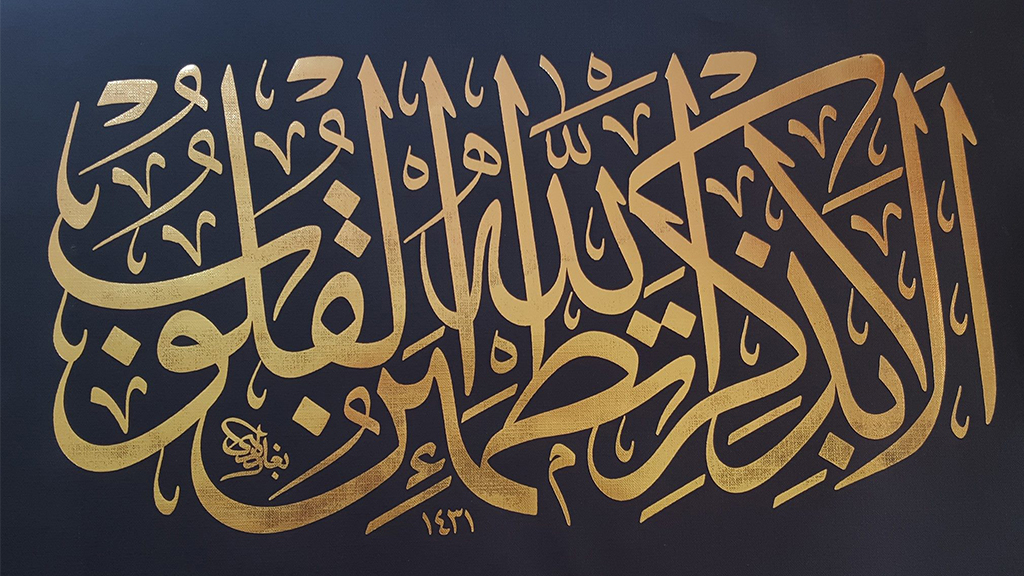 أَلَا بِذِكْرِ اللَّهِ تَطْمَئِنُّ الْقُلُوبُ
١٤٣١